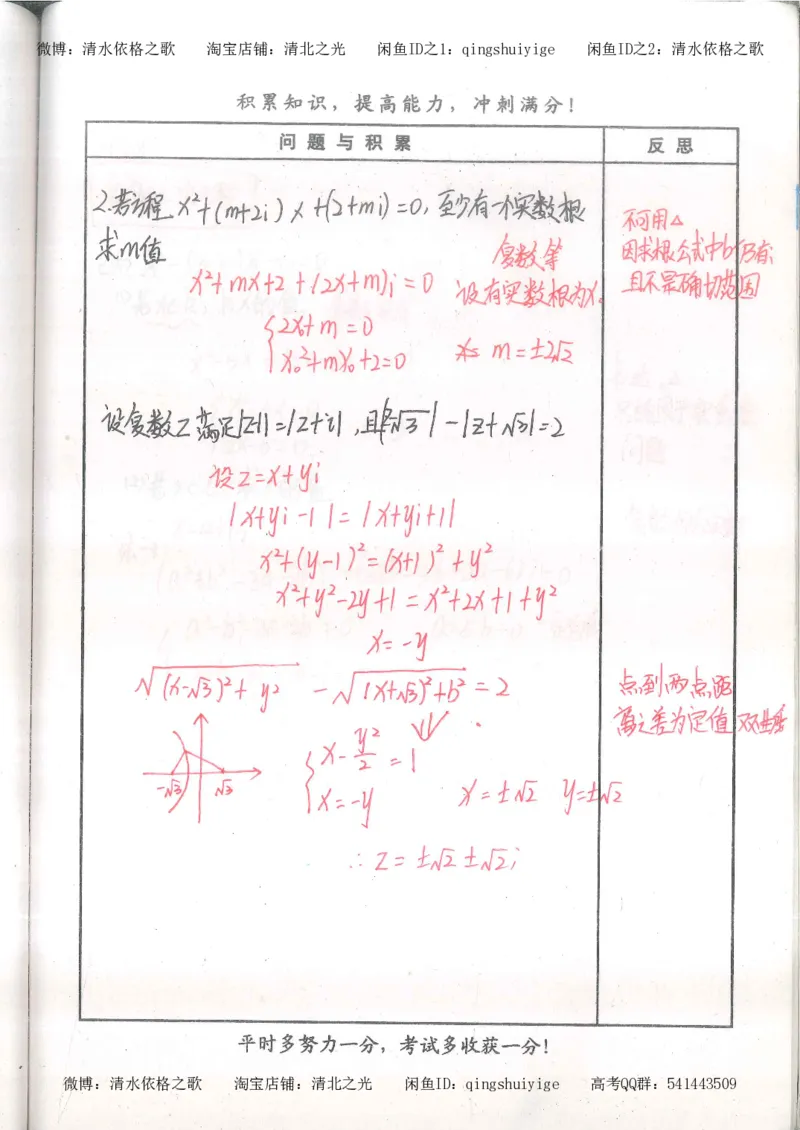 微博：清水依格之歌 淘宝店铺：清北之光 闲鱼ID之1：qingshuiyige 闲鱼ID之2：清水依格之歌
积累知识，提高能力，冲刺满分！
问题与积累 反思
2.若方程 x²+(m+2i)x+(2+mi)=0，至少有一个实数根
求m值
不可用△
因求根公式中b仍有i
且不是确切范围
复数等
x²+mx+2+(2x+m)i=0 设有实数根为x₀
{2x₀+m=0
x₀²+mx₀+2=0 m=±2√2
设复数z满足|z-1|=|z+i|，且|z-√3|-|z+√3|=2
设z=x+yi
|x+yi-1|=|x+yi+1|
x²+(y-1)²=(x+1)²+y²
x²+y²-2y+1=x²+2x+1+y²
x=-y
√(x-√3)²+y² -√(x+√3)²+b² =2
点到两点距
离之差为定值 双曲线
-√3 √3
{x-y²/2=1
x=-y x=±√2 y=±√2
∴z=±√2±√2i
平时多努力一分，考试多收获一分！
微博：清水依格之歌 淘宝店铺：清北之光 闲鱼ID：qingshuiyige 高考QQ群：541443509